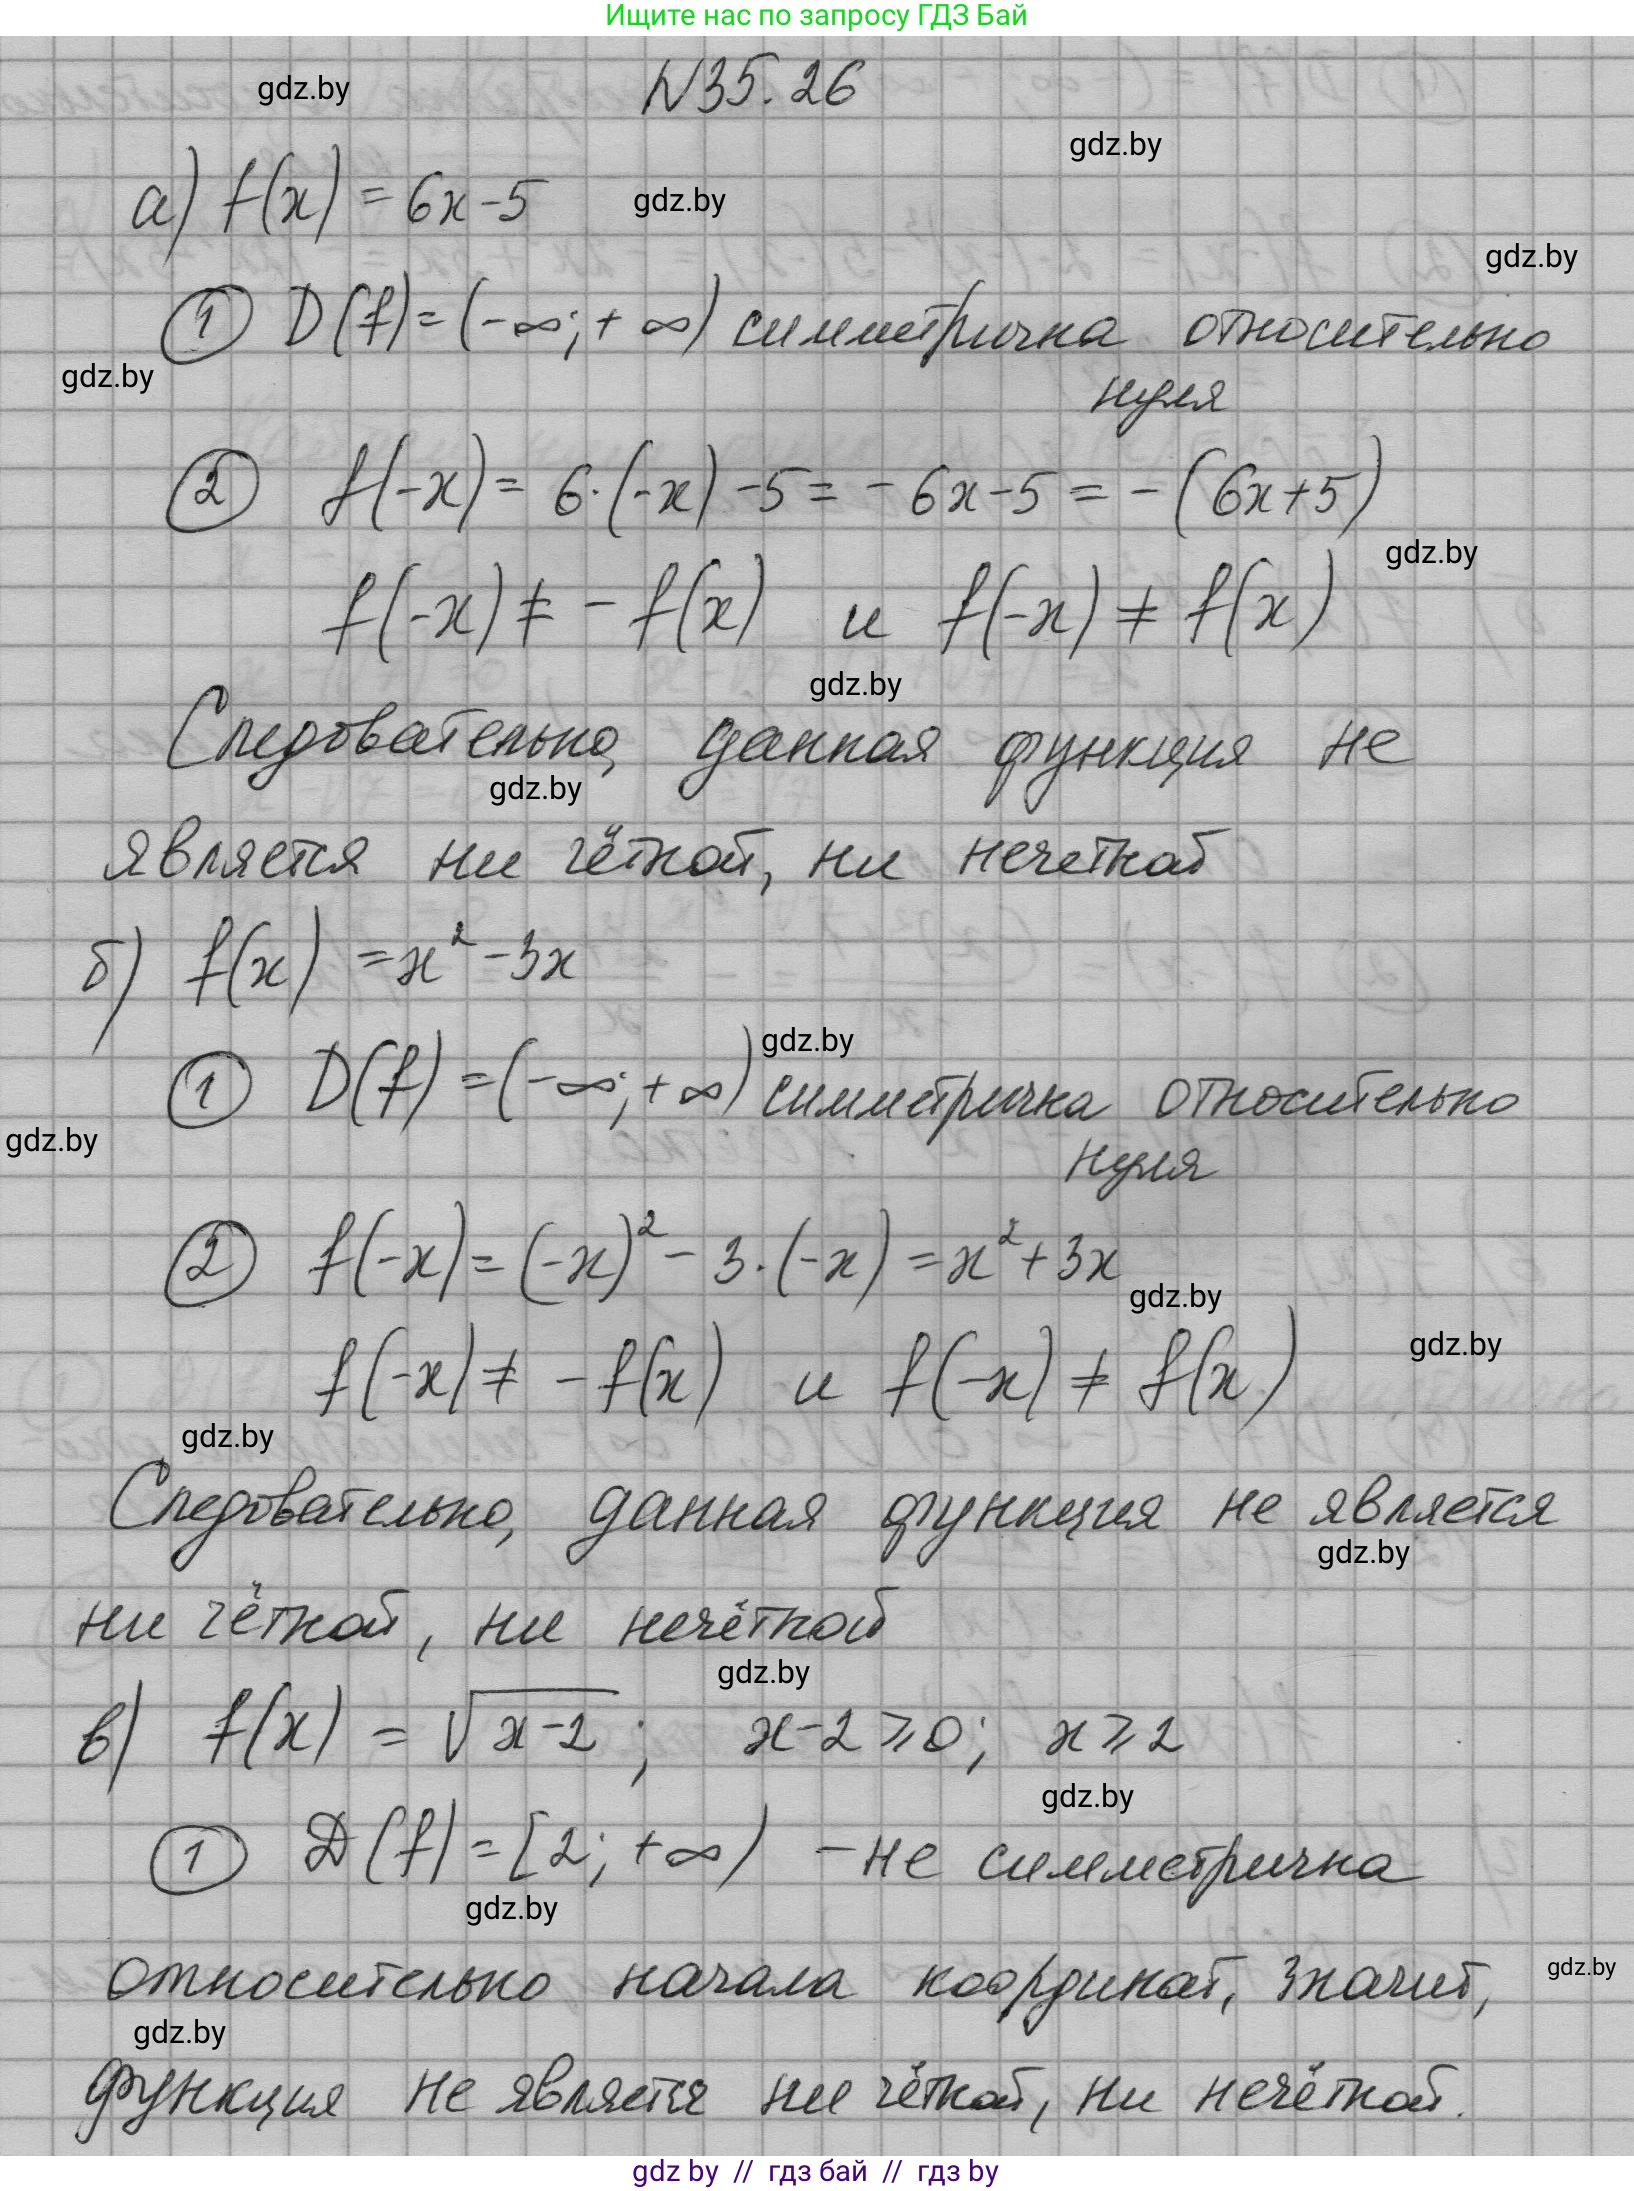 Ищите нас по запросу ГДЗ Бай
gdz.by
N35.26
gdz.by
а) f(x) = 6x-5
gdz.by
gdz.by
① D(f) = (-∞; +∞) симметрична относительно
нуля
gdz.by
② f(-x) = 6·(-x) -5 = -6x-5 = -(6x+5)
gdz.by
f(-x) ≠ -f(x) и f(-x) ≠ f(x)
gdz.by
Следовательно, данная функция не
gdz.by
является ни чётной, ни нечетной
б) f(x) = x² -3x
gdz.by
① D(f) = (-∞; +∞) симметрична относительно
gdz.by
нуля
② f(-x) = (-x)² - 3·(-x) = x² + 3x
gdz.by
gdz.by
f(-x) ≠ -f(x) и f(-x) ≠ f(x)
gdz.by
Следовательно, данная функция не является
gdz.by
ни чётной, ни нечётной
gdz.by
в) f(x) = √x-2; x-2 ⩾ 0; x ⩾ 2
gdz.by
① D(f) = [2; +∞) - не симметрична
gdz.by
относительно начала координат, значит,
gdz.by
gdz.by
функция не является ни чётной, ни нечётной.
gdz by // гдз бай // гдз by